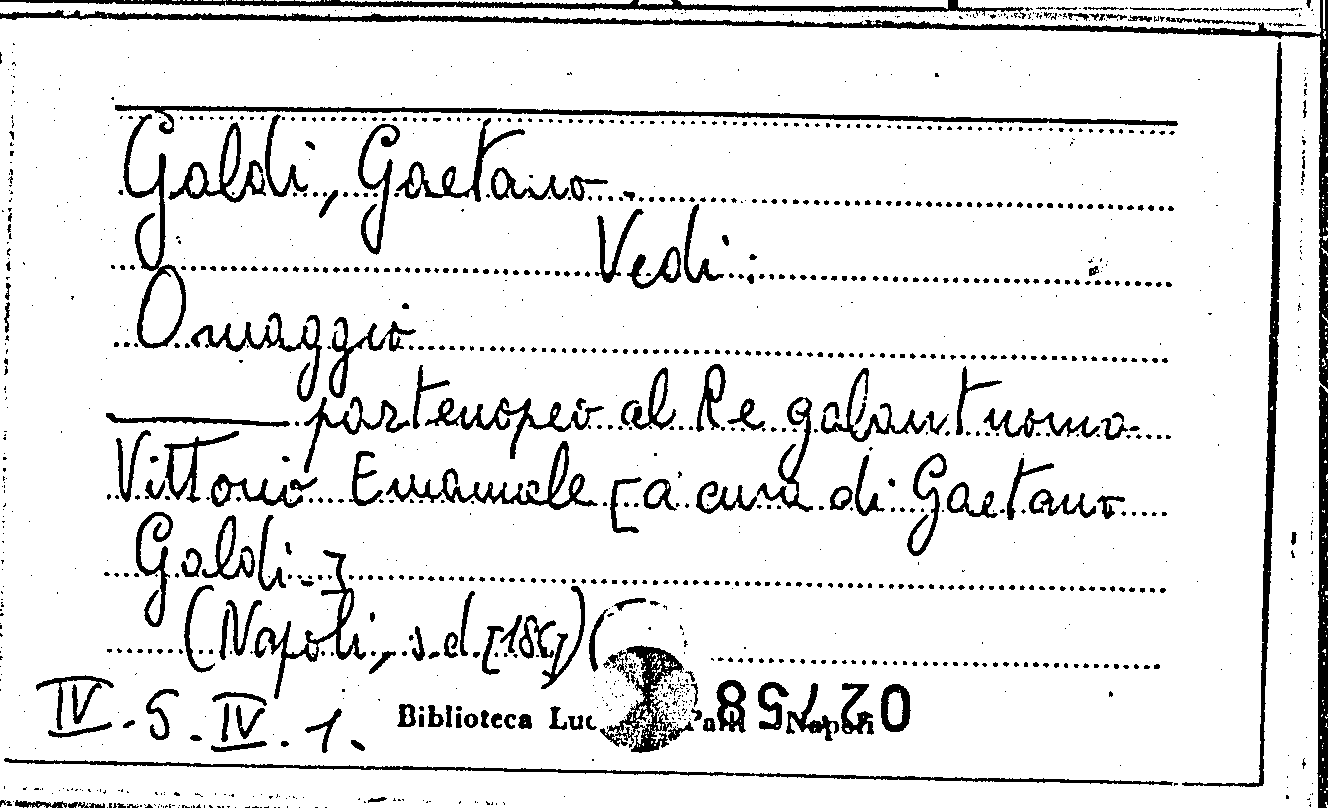 Galdi, Gaetano.
Vedi:
Omaggio
partenopeo al Re galantuomo
Vittorio Emanuele [a cura di Gaetano
Galdi.]
(Napoli, s.d. [186]) (
IV. 5. IV. 1. Biblioteca Luc Palli Napoli